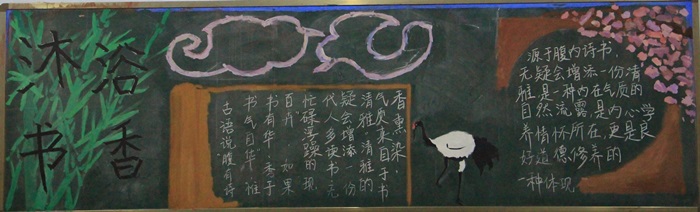 沐浴
书香
古语说"腹有诗
书气自华"。惟
书有华，秀于
百卉。如果
忙碌浮躁的现
代人多读书，无
疑会增添一份
清雅。清雅的
气质来自于书
香熏染，
源于腹内诗书，
无疑会增添一份清
雅是一种内在气质的
自然流露，是内心学
养情怀所在，更是良
好道德修养的
一种体现